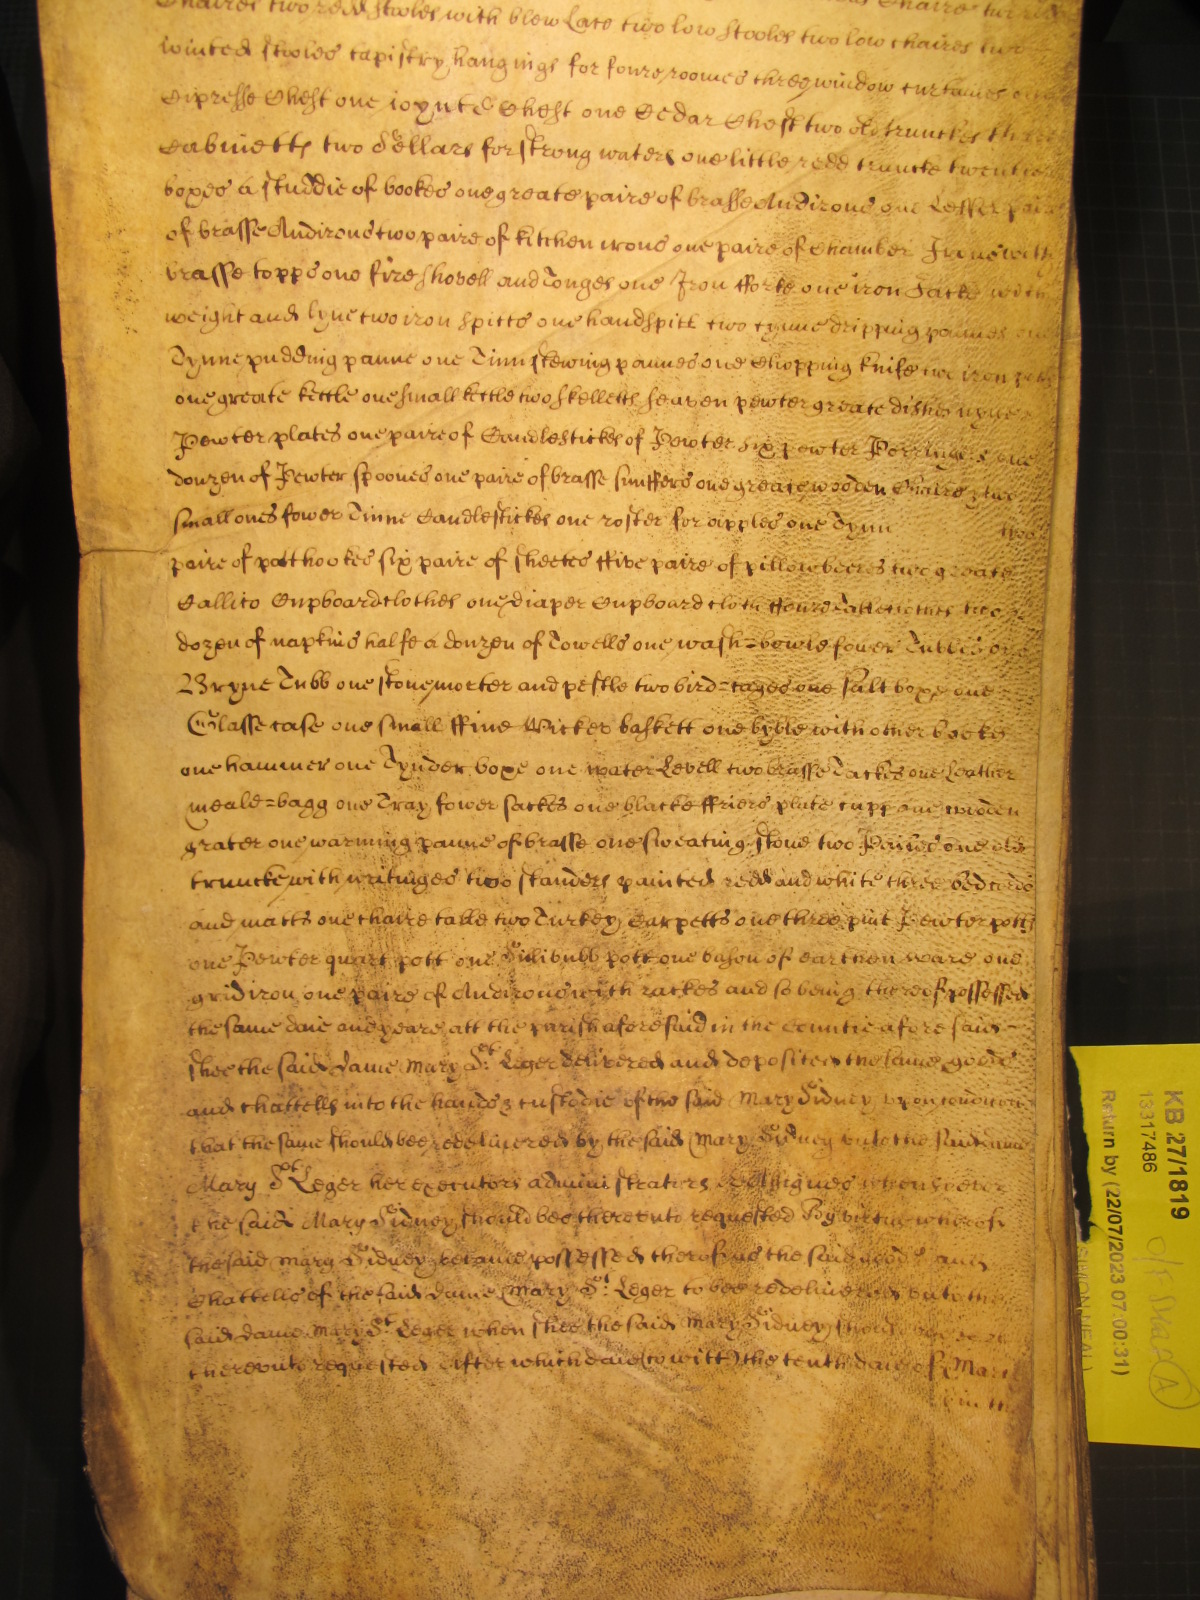 Chaires two redd stooles with blew Lace two low stooles two low chaires two
stooles tapistry hangings for foure roomes three window curtaines one
Cipresse Chest one ioynt Chest one Cedar Chest two old trunckes three
Cabinetts two Cellars for strong waters one little redd truncke twentie
boxes a studdie of bookes one greate paire of brasse Andirons one Lesser paire
of brasse Andirons two paire of kitchen irons one paire of Chamber Irons with
brasse topps one fireshovell and Tonges one Iron fforke one iron Jacke with
weight and lyne two iron spitts one handspitt two tynne dripping pannes one
Tynne pudding panne one Tinn stewing pannes one Chopping knife two iron
one greate kettle one small kettle two skelletts seaven pewter greate dishes nyne
Pewter plates one paire of Candlestickes of Pewter six pewter Porringers one
douzen of Pewter spoones one paire of brasse snuffers one greate wooden Chaire & two
small ones fower Tinne Candlestickes one roster for apples one Tynn two
paire of potthookes six paire of sheetes ffive paire of pillowbeeres two greate
Callico Cupboardclothes one diaper Cupboard cloth ffoure Tableclothes two
dozen of napkins halfe a douzen of Towells one wash=bowle fower Tubbes one
Bryne Tubb one stone morter and pestle two bird=cages one salt boxe one
Glasse case one small ffine Wicker baskett one byble with other bookes
one hammer one Tynder boxe one water Levell two brasse Jackes one leather
meale=bagg one Tray fower sackes one blacke ffriers plate cupp one wooden
grater one warming panne of brasse one sweating stone two one old
truncke with writinges two standers painted redd and white three bedcords
and matts one chaire table two Turkey Carpetts one three pint Pewter pott
one Pewter quart pott one Sillibubb pott one bason of earthen ware one
gridiron one paire of Andirons with rackes and so being thereof possessed
the same daie and yeare att the parish aforesaid in the countie aforesaid
shee the said Dame Mary St. Leger delivered and deposited the same goods
and chattells into the hands & custodie of the said Mary Sidney upon condicion
that the same should bee redelivered by the said Mary Sidney unto the said Dame
Mary St Leger her executors administrators or Assignes whensoever
the said Mary Sidney should bee thereunto requested By virtue whereof
the said Mary Sidney became possessed therof as the said goods and
Chattells of the said Dame Mary St. Leger to bee redelivered unto the
said Dame Mary St Leger when shee the said Mary Sidney should bee
thereunto requested After which daie (to witt) the tenth daie of
in the
KB 27/1819
13317486
Return by (22/07/2023 07:00:31)